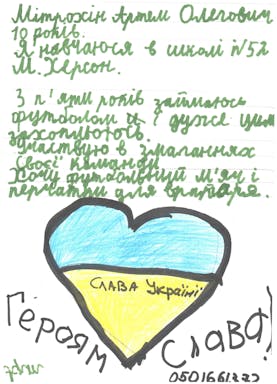 Мітрохін Артем Олегович
10 років.
Я навчаюся в школі №52
М. Херсон.
З п'яти років займаюсь
футболом и дуже цим
захоплююсь.
Участвую в змаганнях
своєї команди.
Хочу футбольний м'яч і
перчатки для вратаря.
Слава Україні!
Героям Слава!